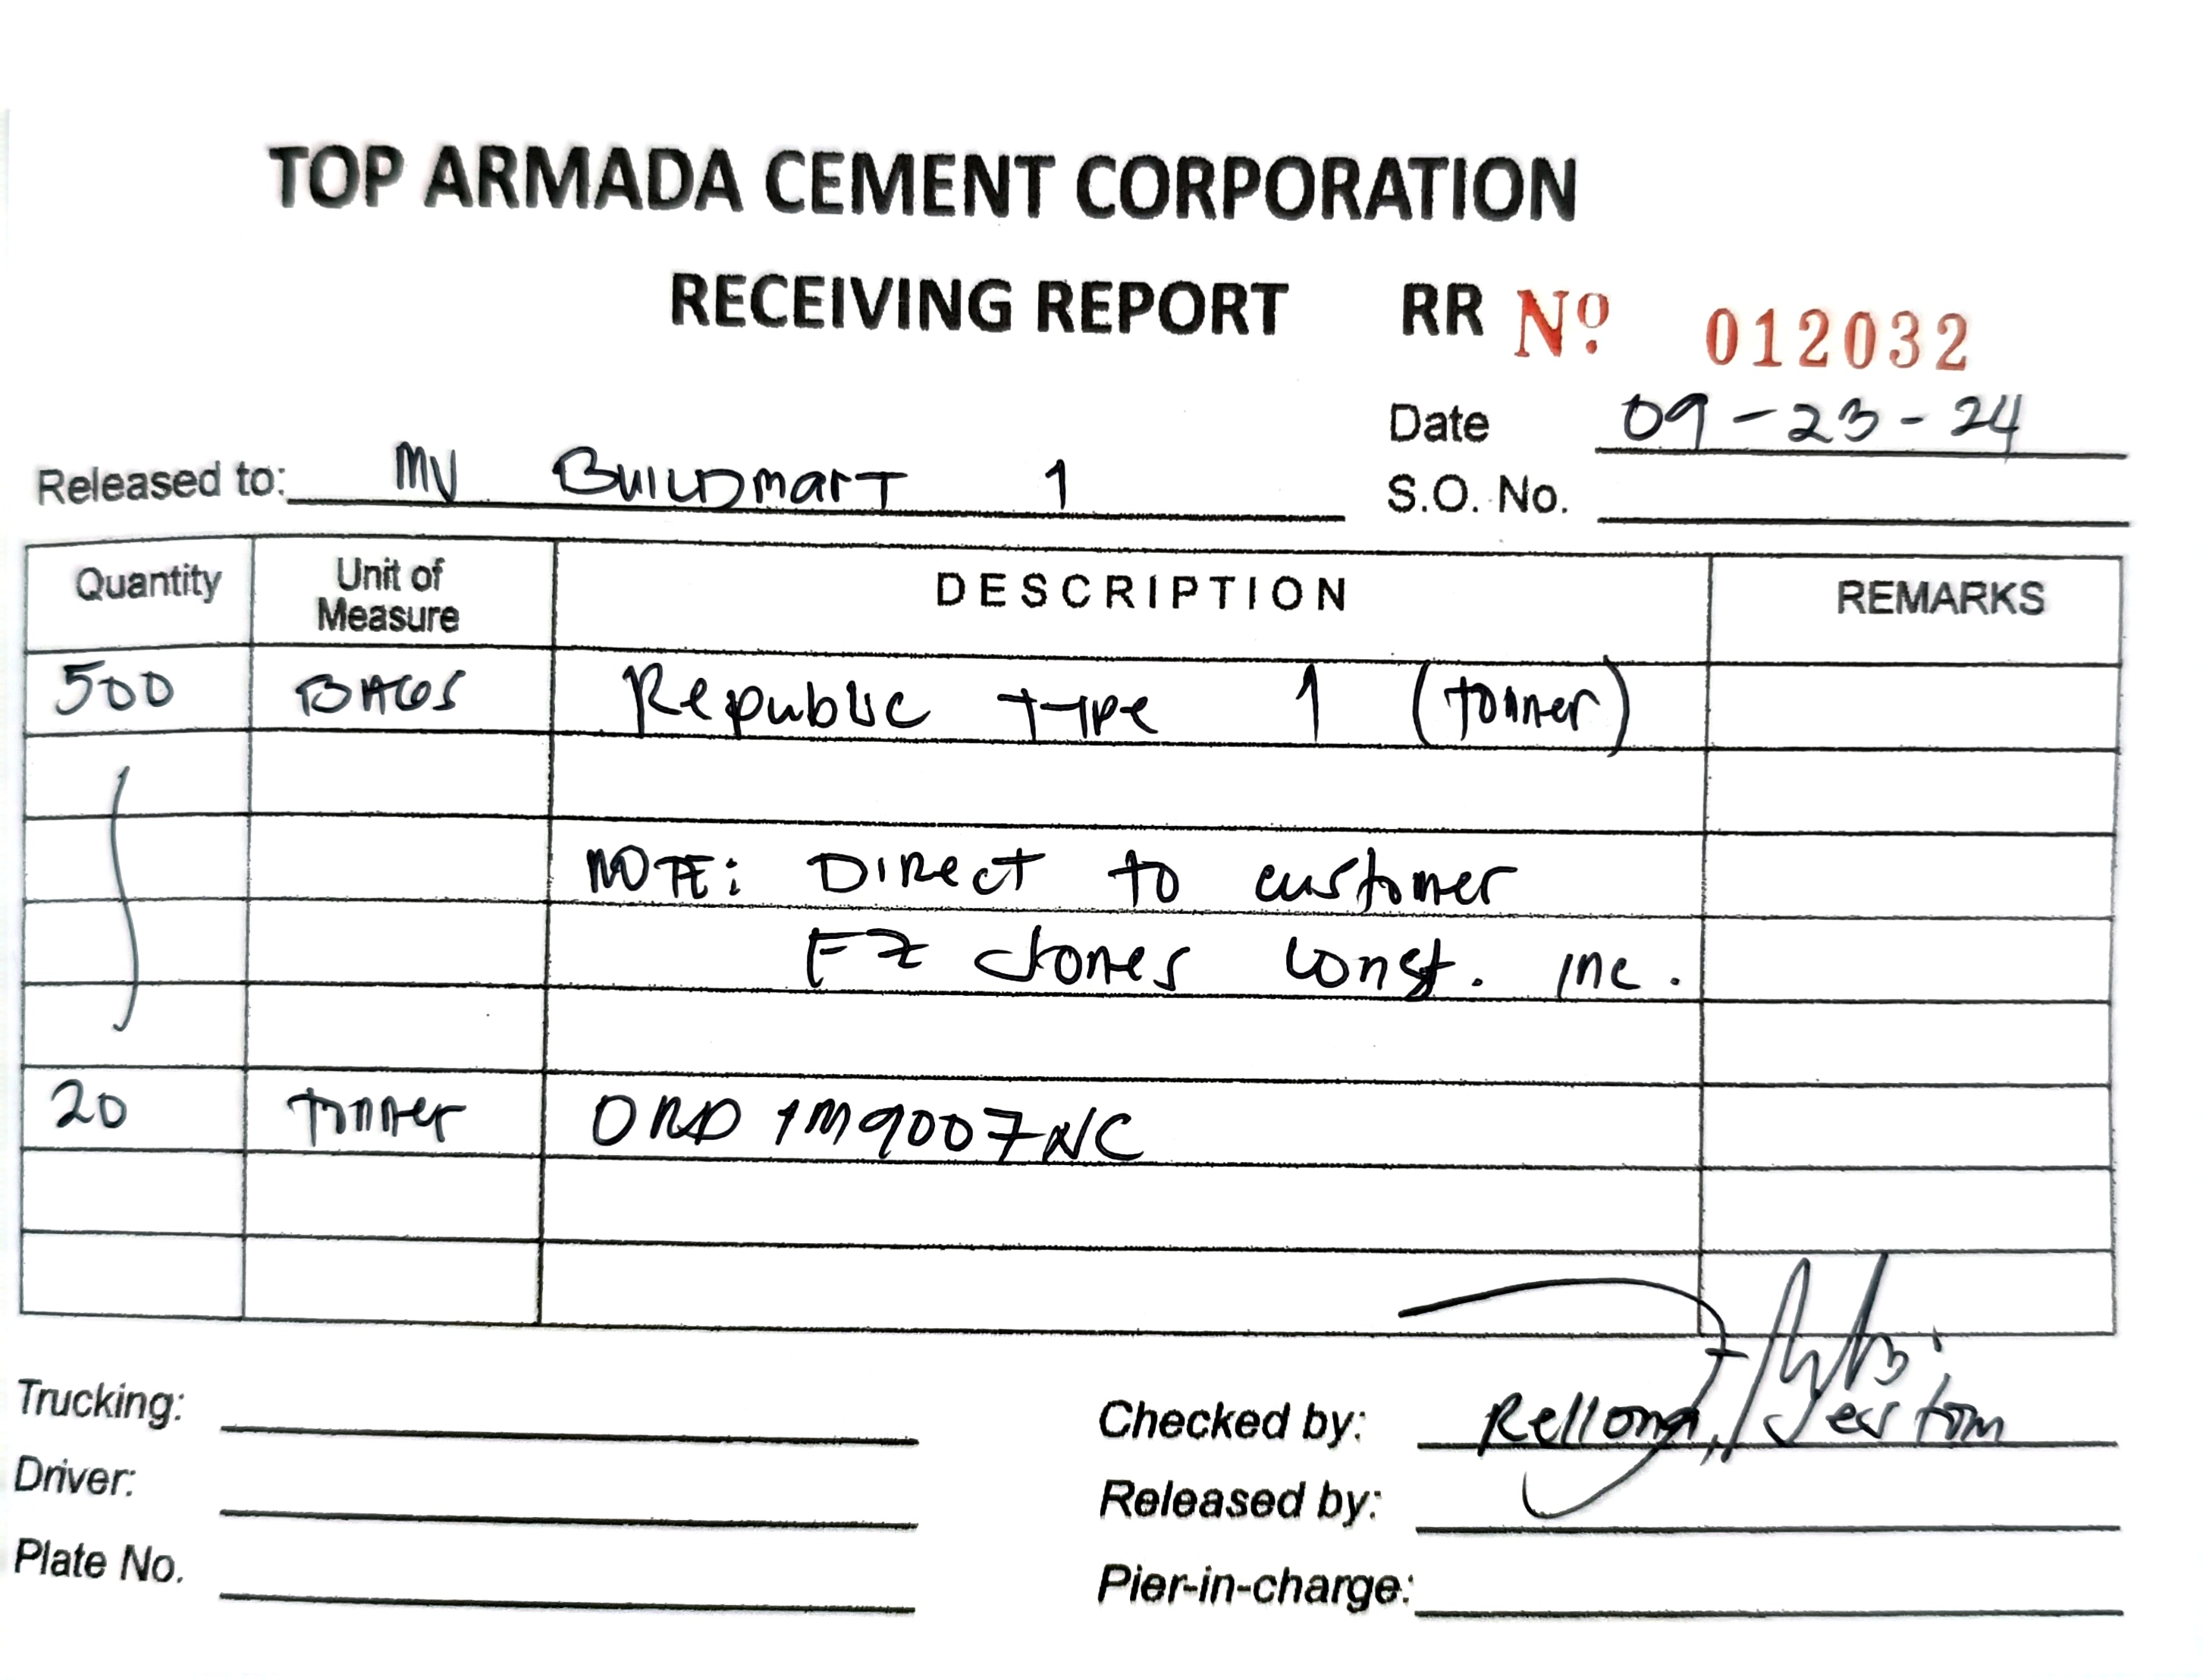 TOP ARMADA CEMENT CORPORATION
RECEIVING REPORT RR Nº 012032
Date 09-23-24
Released to: MV BUILDmarT 1
S.O. No.
Quantity Unit of Measure DESCRIPTION REMARKS
500 BAGS Republic type 1 (tonner)
NOTE: Direct to customer
EZ Jones const. inc.
20 tonner ORD 1M9007NC
Trucking:
Checked by: Rellona, Jes tom
Driver:
Released by:
Plate No.
Pier-in-charge: